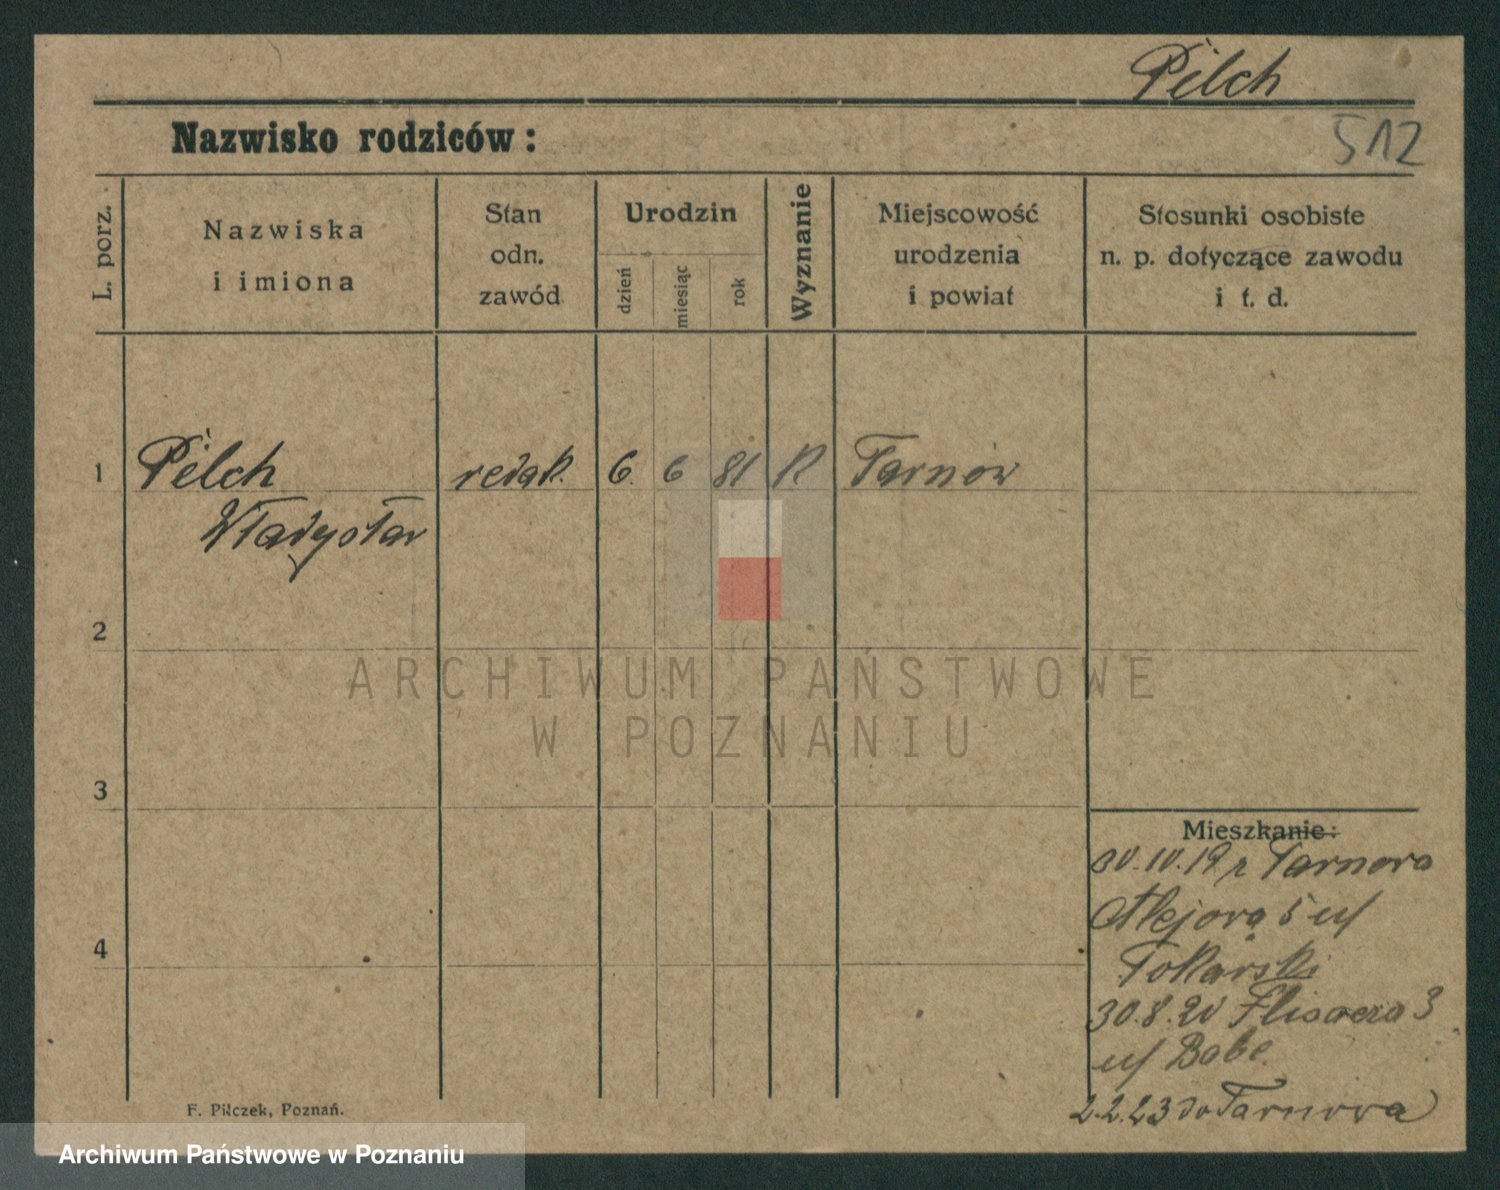 Pilch
Nazwisko rodziców:
512
L. porz.
Nazwiska
i imiona
Stan
odn.
zawód
Urodzin
dzień
miesiąc
rok
Wyznanie
Miejscowość
urodzenia
i powiat
Stosunki osobiste
n. p. dotyczące zawodu
i t. d.
1 Pilch redak. 6. 6 81 K Tarnów
Władysław
2
ARCHIWUM PAŃSTWOWE
W POZNANIU
3
Mieszkanie:
30.10.19 z Tarnowa
Alejowa 5 u/
Tokarski
4
30.8.20 Flisacza 3
u/ Bobe
2.2.23 do Tarnowa
F. Pilczek, Poznań.
Archiwum Państwowe w Poznaniu